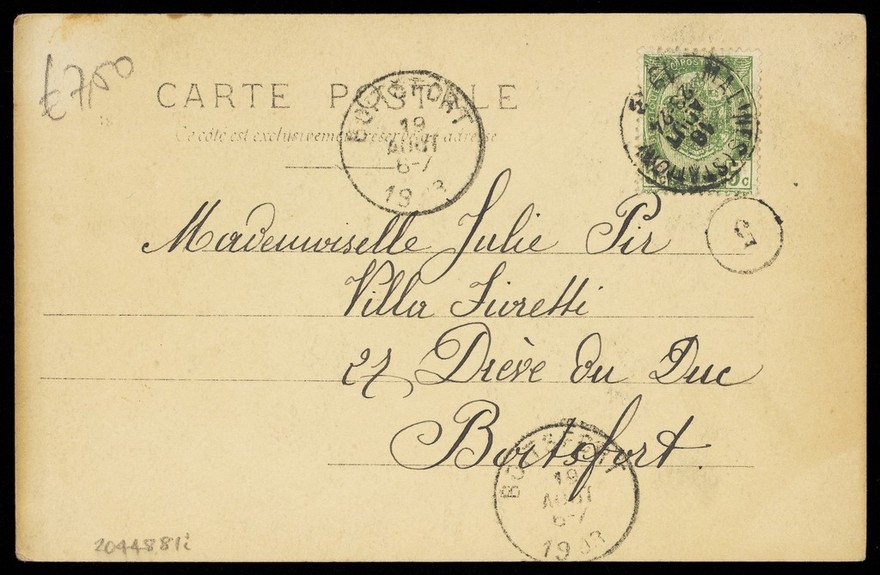 €7,50
CARTE POSTALE
Ce côté est exclusivement réservé à l'adresse
BOITSFORT
19
AOUT
6-7
1903
MALINES (STATION)
5
Mademoiselle Julie Pir
Villa Fioretti
27 Drève du Duc
Boitsfort.
BOITSFORT
19
AOUT
6-7
1903
2044881i